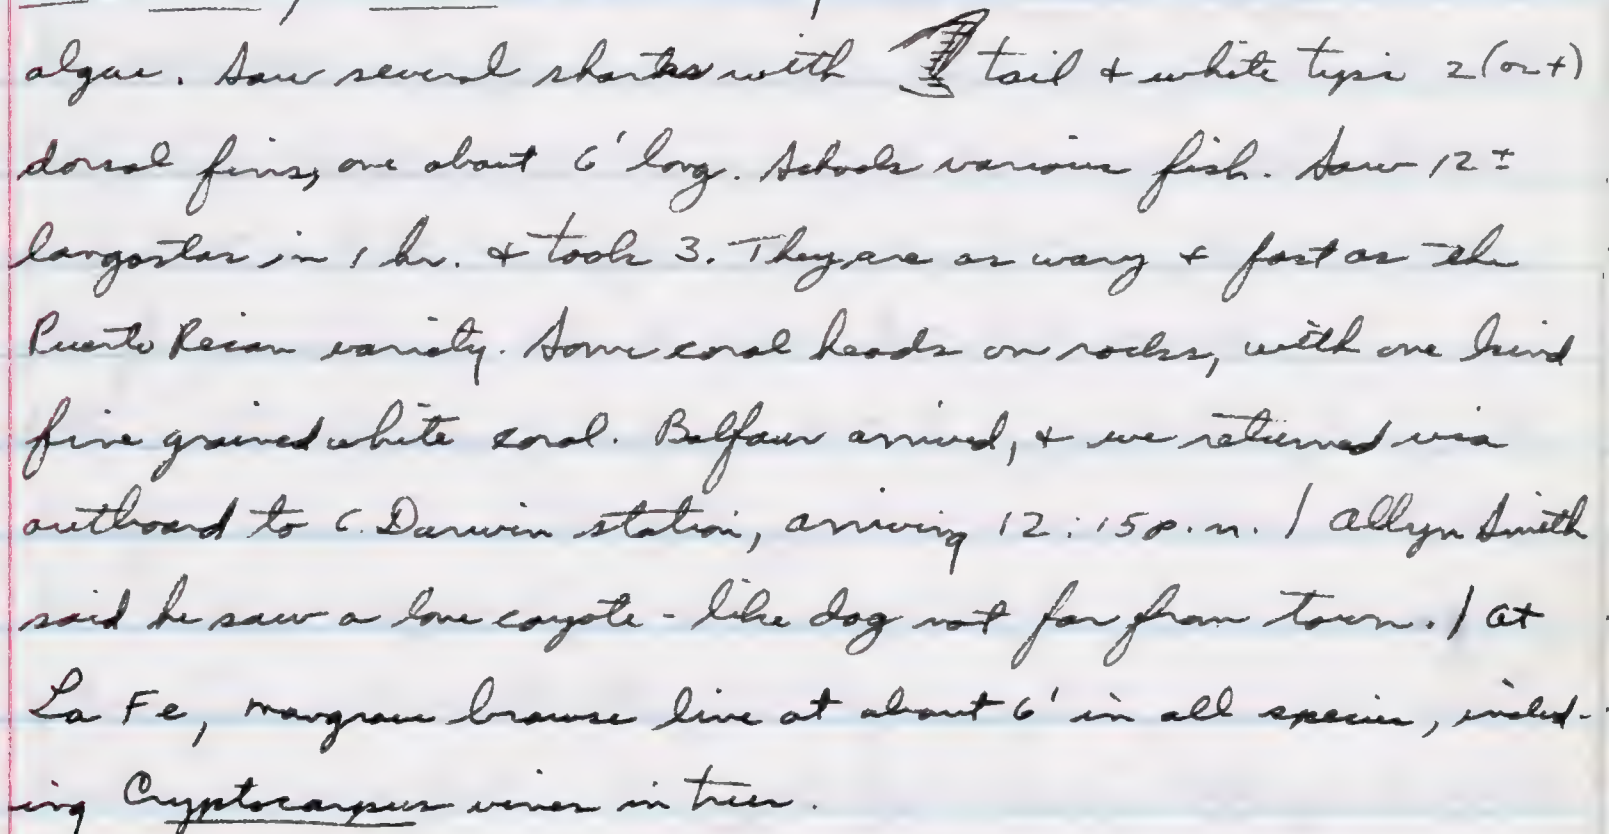 algae. Saw several sharks with tail & white tips 2 (or +)
dorsal fins, one about 6' long. Schools various fish. Saw 12±
langostas in 1 hr. & took 3. They are as wary & fast as the
Puerto Rican variety. Some coral heads on rocks, with one kind
fine grained white coral. Balfour arrived, & we returned via
outboard to C. Darwin station, arriving 12:15 p.m. / Allyn Smith
said he saw a lone coyote-like dog not far from town. / At
La Fe, mangrove browse line at about 6' in all species, includ-
ing Cryptocarpus vines in trees.